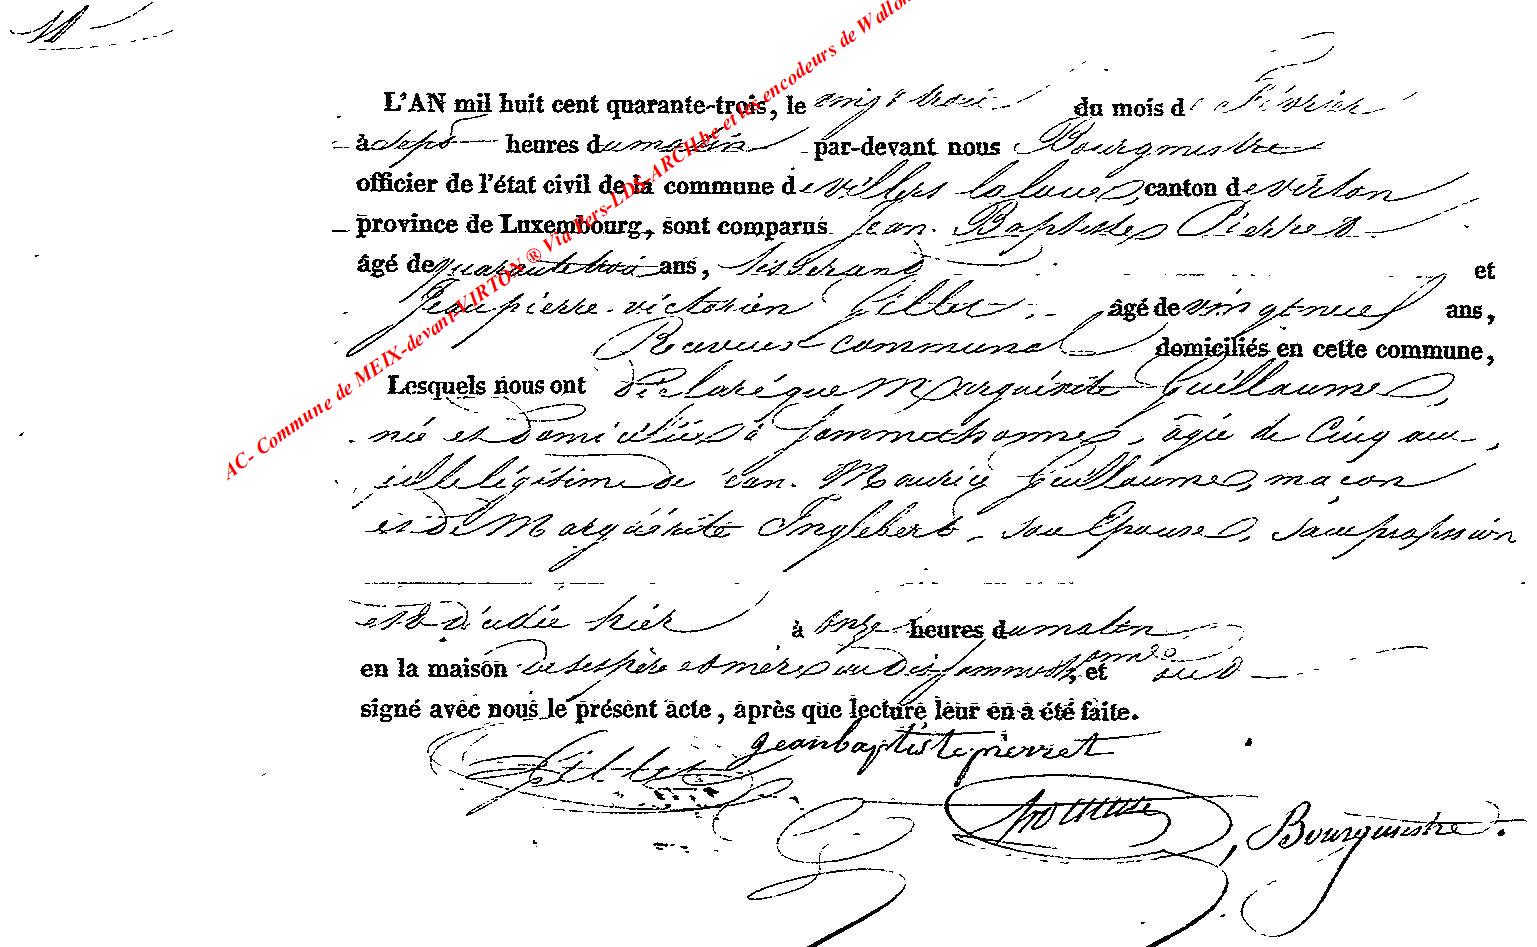 AC- Commune de MEIX-devant-VIRTON ® Via Vers-LDS-ARCH.be et les encodeurs de Wallon
L'AN mil huit cent quarante-trois, le vingt trois du mois de Février
à sept heures du matin par-devant nous Bourgmestre
officier de l'état civil de la commune de villers la loue, canton de virton
province de Luxembourg, sont comparus Jean Baptiste Pierret
âgé de quarante trois ans, tisserand et
Jean pierre victorien Gillet âgé de vingt neuf ans,
Receveur communal domiciliés en cette commune,
Lesquels nous ont déclaré que Marguérite Guillaume,
née et domiciliée à âgée de Cinq ans,
fille légitime de Jean Maurice Guillaume, maçon
et de Marguérite Inglebert son Epouse, sans profession
est décédée hier à onze heures du matin
en la maison de ses père et mère au dit , et ont
signé avec nous le présent acte, après que lecture leur en a été faite.
jeanbaptiste pierret
Gillet
, Bourgmestre.